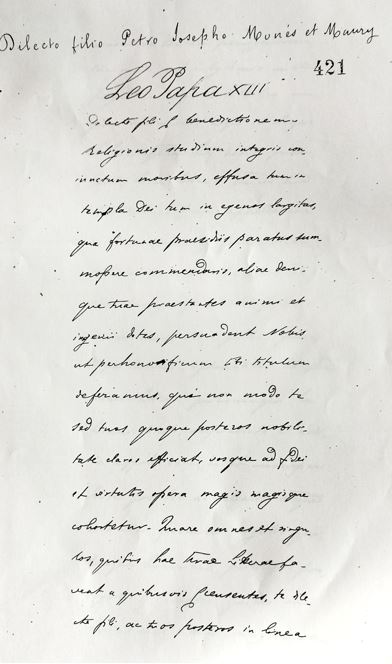 Dilecto filio Petro Josepho Monés et Maury
421
Leo Papa XIII
Dilecte fili benedictionem
Religionis studium integris con
iunctum moribus, effusa tum in
templa Dei tum in egenos largitas,
qua fortunae praesidiis paratus sum
mopere commendaris, aliae den-
que tuae praestantes animi et
ingenii dotes, persuadent Nobis
ut perhonorificum tibi titulum
deferamus, qui non modo te
sed tuos quoque posteros nobili-
tate claros efficiat, vosque ad fidei
et virtutis opera magis magisque
cohortetur. Quare omnes et singu-
los, quibus hae Literae fa-
veat a quibusvis censentes, te dile-
cte fili, ac tuos posteros in linea